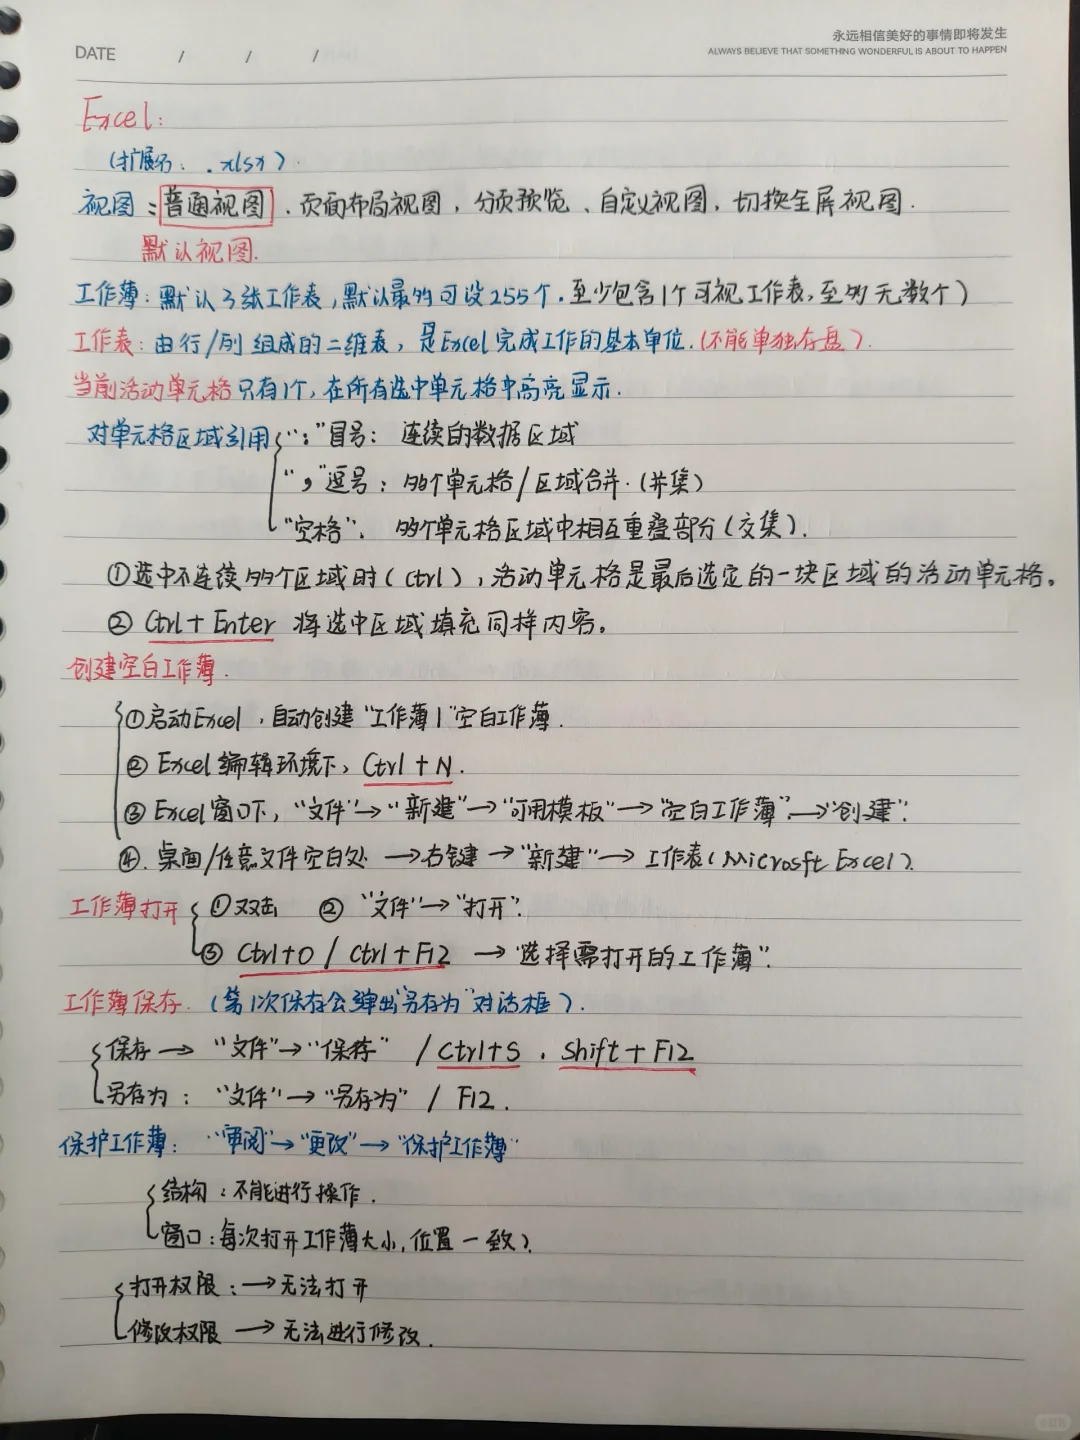 永远相信美好的事情即将发生
DATE / / /
ALWAYS BELIEVE THAT SOMETHING WONDERFUL IS ABOUT TO HAPPEN
Excel:
(扩展名: .xlsx).
视图:普通视图、页面布局视图,分页预览、自定义视图,切换全屏视图.
默认视图.
工作薄:默认3张工作表,默认最多可设255个.至少包含1个可视工作表,至多无数个)
工作表:由行/列组成的二维表,是Excel完成工作的基本单位.(不能单独存盘).
当前活动单元格只有1个,在所有选中单元格中高亮显示.
对单元格区域引用 ":"冒号: 连续的数据区域
","逗号: 多个单元格/区域合并.(并集)
"空格": 多个单元格区域中相互重叠部分(交集).
①选中不连续多个区域时(ctrl),活动单元格是最后选定的一块区域的活动单元格。
② Ctrl+Enter 将选中区域填充同样内容。
创建空白工作薄.
①启动Excel,自动创建"工作薄1"空白工作薄.
② Excel编辑环境下, Ctrl+N.
③ Excel窗口下,"文件"→"新建"→"可用模板"→"空白工作薄"→"创建".
④.桌面/任意文件空白处→右键→"新建"→工作表(Microsft Excel).
工作薄打开 ①双击 ②"文件"→"打开".
③ Ctrl+O / Ctrl+F12 →"选择需打开的工作薄".
工作薄保存.(第1次保存会弹出"另存为"对话框).
保存→"文件"→"保存" / Ctrl+S . Shift+F12
另存为: "文件"→"另存为" / F12.
保护工作薄: "审阅"→"更改"→"保护工作薄"
结构:不能进行操作.
窗口:每次打开工作薄大小,位置一致).
打开权限:→无法打开
修改权限→无法进行修改.